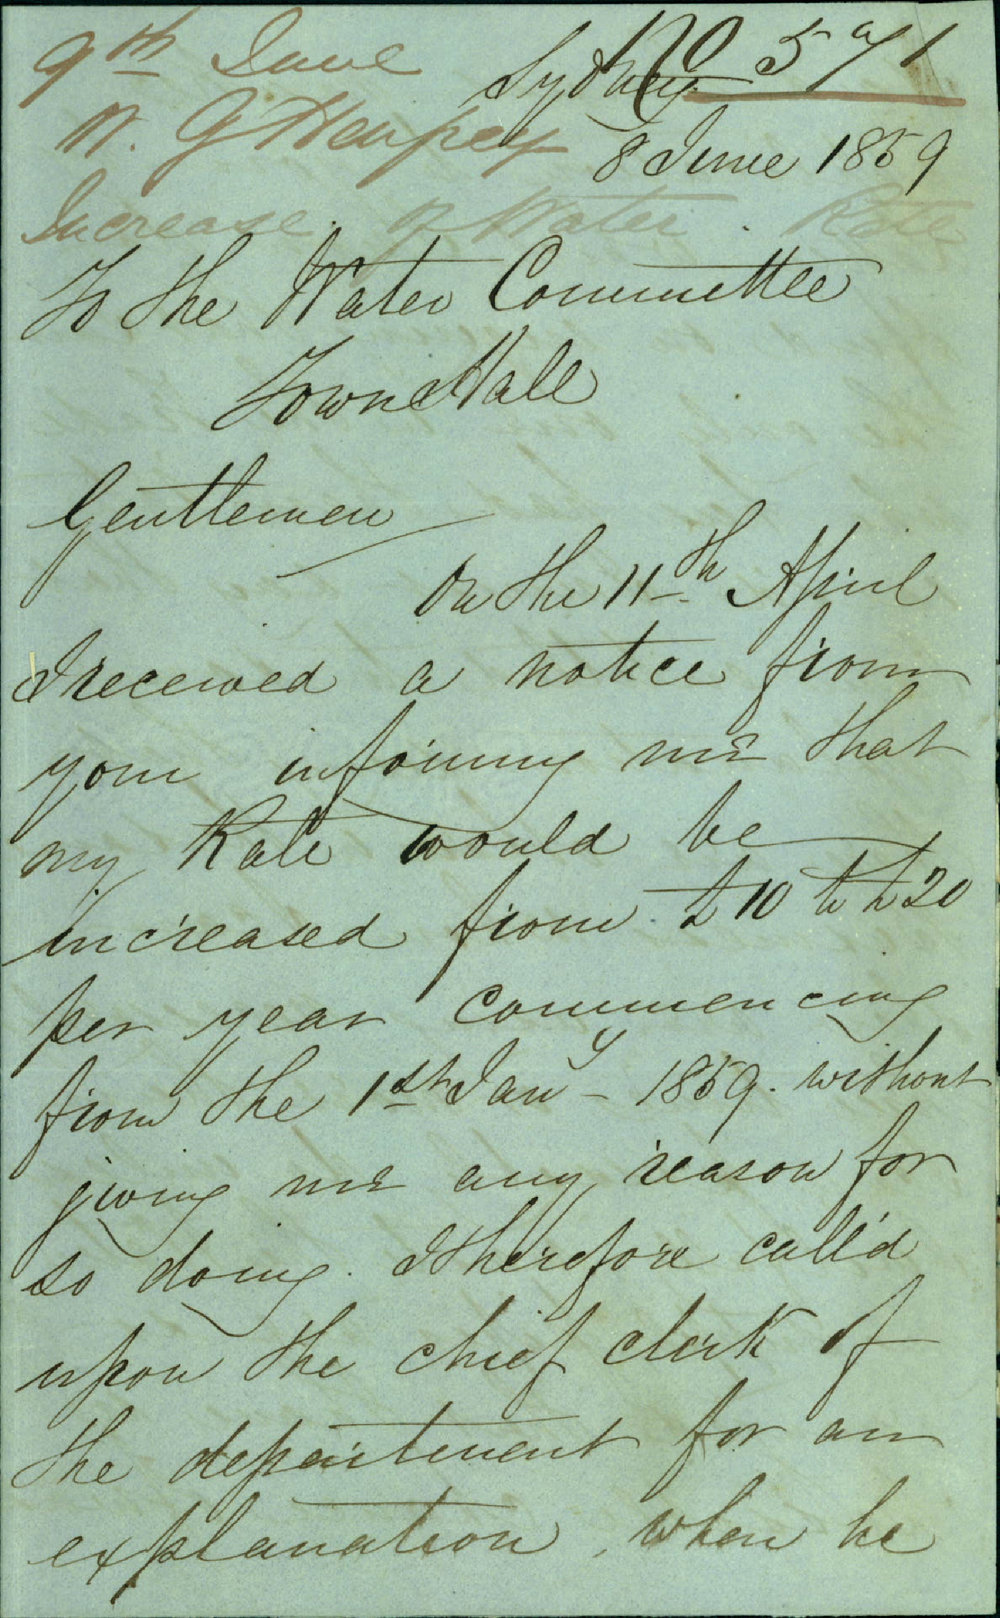 9th June
No 571
Sydney
W. G. Hempey
8 June 1859
Increase of Water Rate
To the Water Committee
Town Hall
Gentlemen
On the 11th April
I received a notice from
you informing me that
my Rate would be
increased from £10 to £20
per year commencing
from the 1st Jany 1859. without
giving me any reason for
so doing. I therefore call'd
upon the chief clerk of
the department for an
explanation, when he